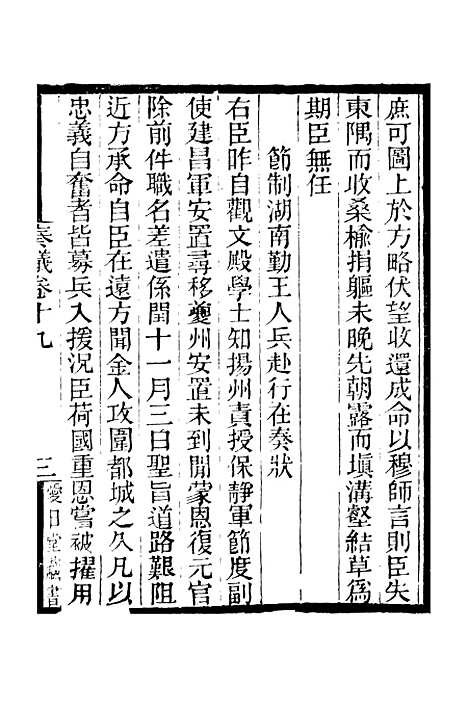 庶可圖上於方略伏望收還成命以穆師言則臣失
東隅而收桑榆捐軀未晚先朝露而塡溝壑結草爲
期臣無任
節制湖南勤王人兵赴行在奏狀
右臣昨自觀文殿學士知揚州責授保靜軍節度副
使建昌軍安置尋移夔州安置未到閒蒙恩復元官
除前件職名差遣係閏十一月三日聖旨道路艱阻
近方承命自臣在遠方聞金人攻圍都城之久凡以
忠義自奮者皆募兵入援況臣荷國重恩嘗被擢用
奏議卷十九
三
愛日堂藏書